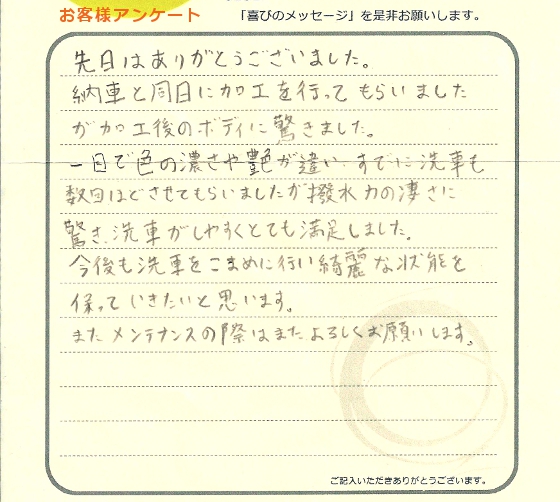 お客様アンケート 「喜びのメッセージ」を是非お願いします。
先日はありがとうございました。
納車と同日に加工を行ってもらいました
が加工後のボディに驚きました。
一目で色の濃さや艶が違い、すでに洗車も
数回ほどさせてもらいましたが撥水力の凄さに
驚き、洗車がしやすくとても満足しました。
今後も洗車をこまめに行い綺麗な状態を
保っていきたいと思います。
またメンテナンスの際はまたよろしくお願いします。
ご記入いただきありがとうございます。